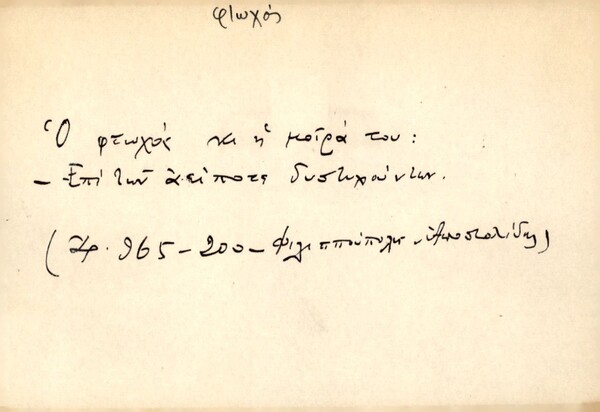 φτωχός
Ὁ φτωχός κι ἡ μοῖρά του :
– Ἐπί τῶν ἀείποτε δυστυχούντων.
( Χφ. 965 – 200 – Φιλιππούπολη – Ἀποστολίδης )